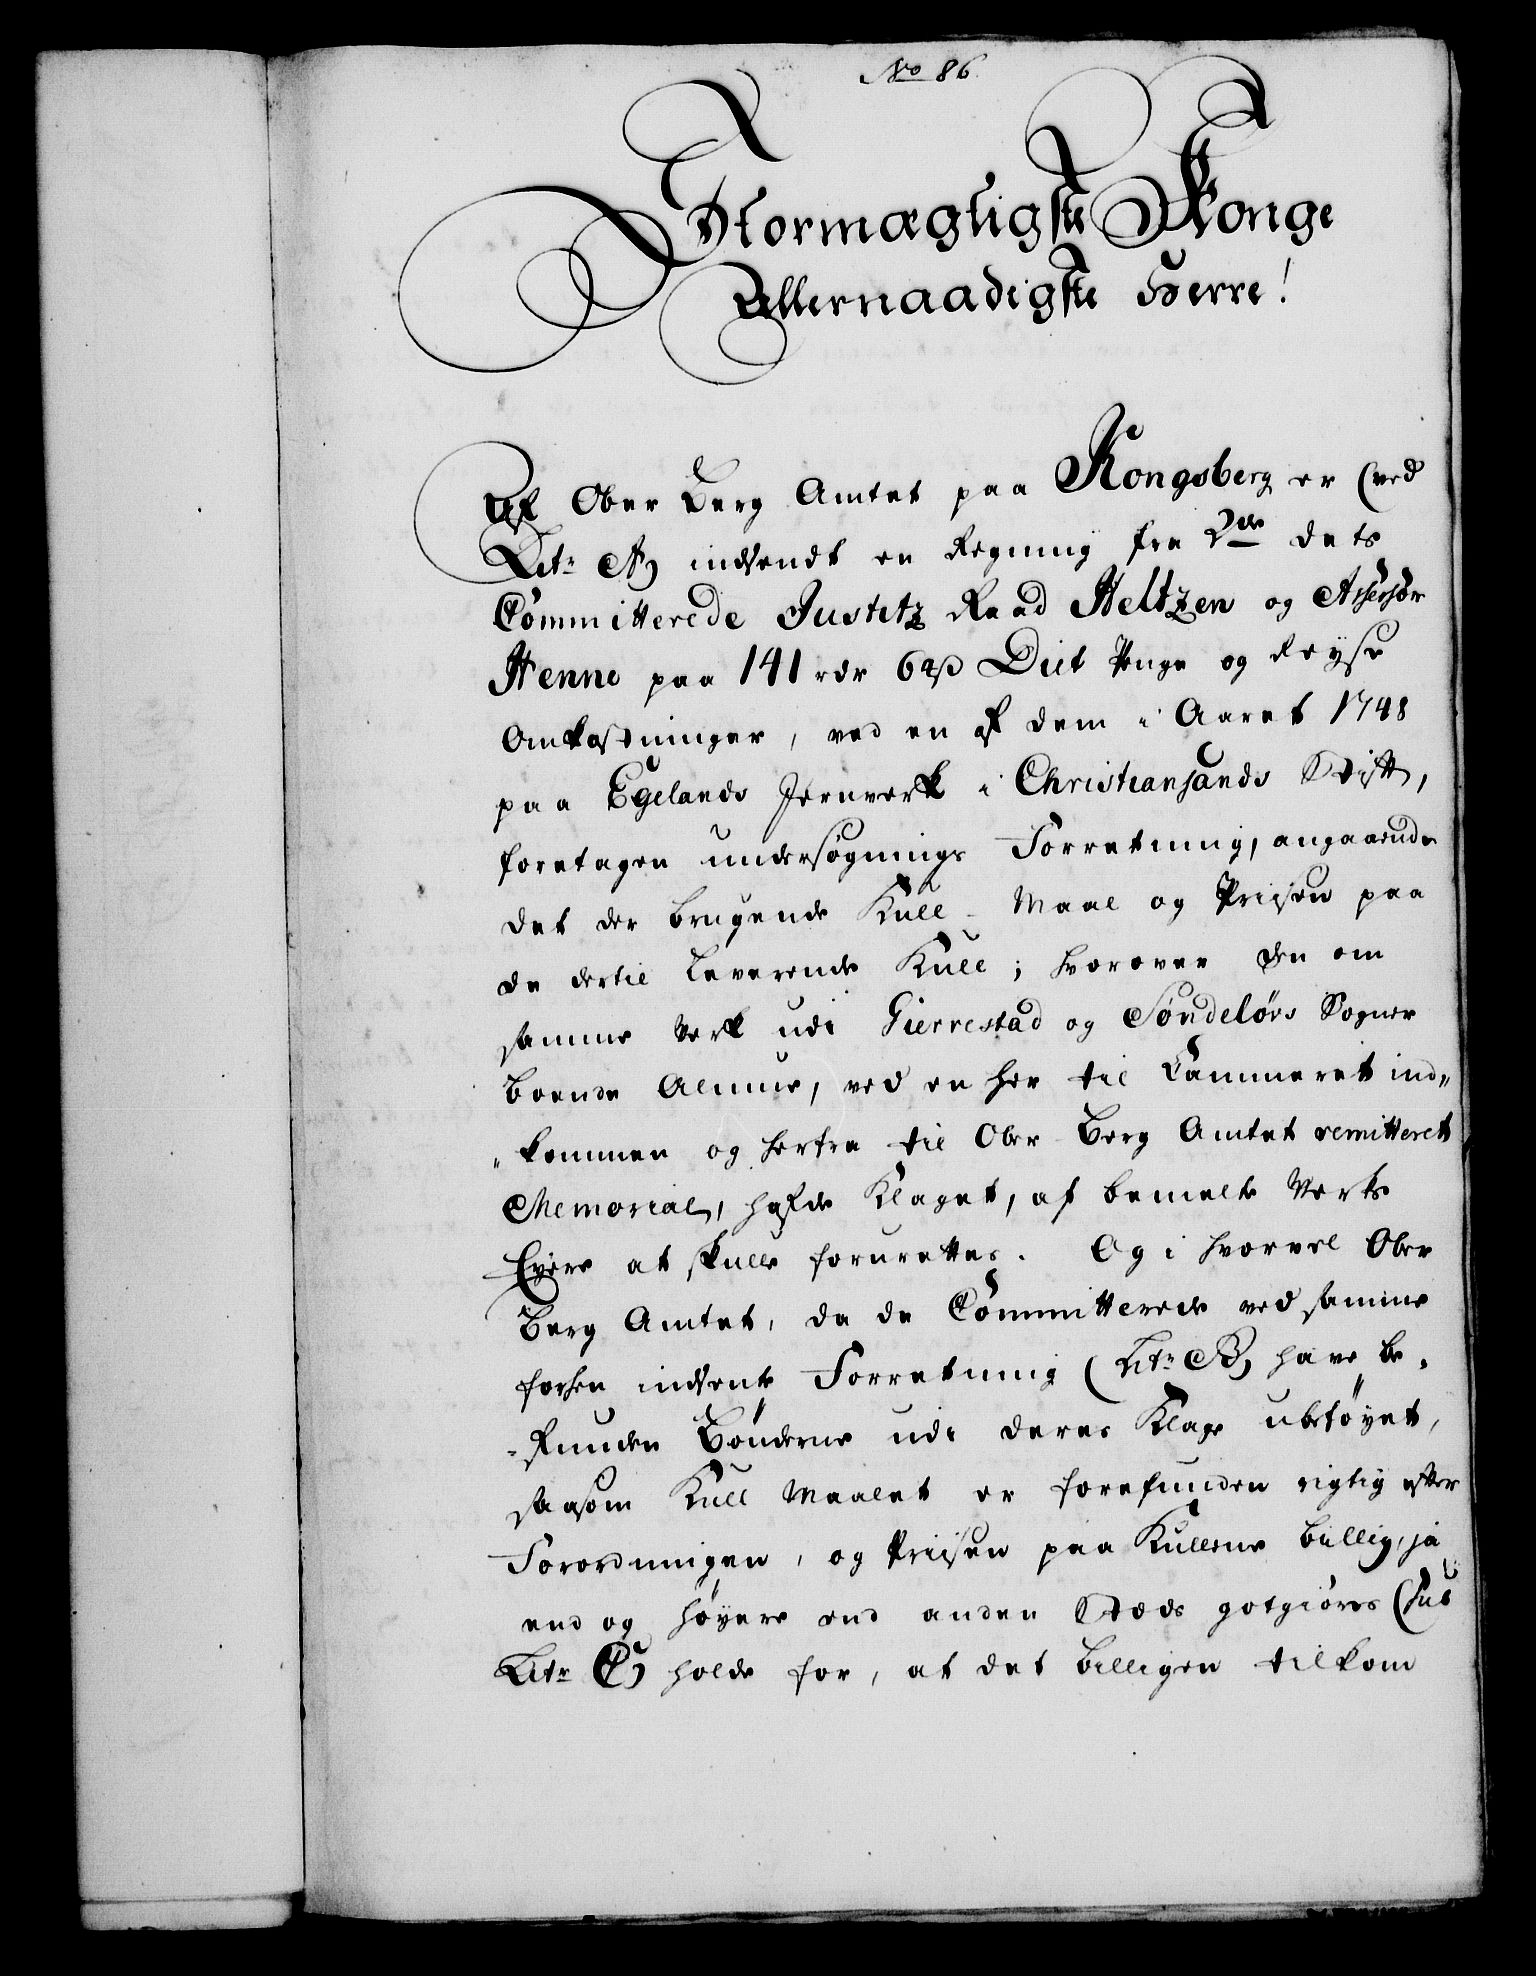 No 86.
Stormægtigste Konge
Allernaadigste Herre!
Af Ober Berg Amtet paa Kongsberg er (ved
Litr A) indsendt en Regning fra dets
Committerede Justitz Raad Heltzen og Assessor
Henne paa 141 rdr Diet Penge og Reyse
Omkostninger, ved en af dem i Aaret 1748
paa Egelands Jernverk i Christiansands Stift,
foretagen undersøgnings Forretning, angaaende
det der brugende Kull-Maal og Prisen paa
de dertil leverende Kull; hvorover de om
samme Verk udi Gierrestad og Søndeløvs Sogner
boende Almue, ved en her til Cammeret ind„
„kommen og herfra til Ober-Berg Amtet remitteret
Memorial, hafde klaget, af bemelte Verks
Eyere at skulle forurettes. Og i hvorvel Ober
Berg Amtet, da de Committerede ved samme
forhen indsente Forretning (Litr B) have be-
-funden Bønderne udi deres Klage ubeføyet,
saasom Kull Maalet er forefunden rigtig efter
Forordningen, og Priisen paa Kullene billig, ja
end og høyere end anden Stæds gotgiøres (sub
Litr C) holde for, at det billigen tilkom